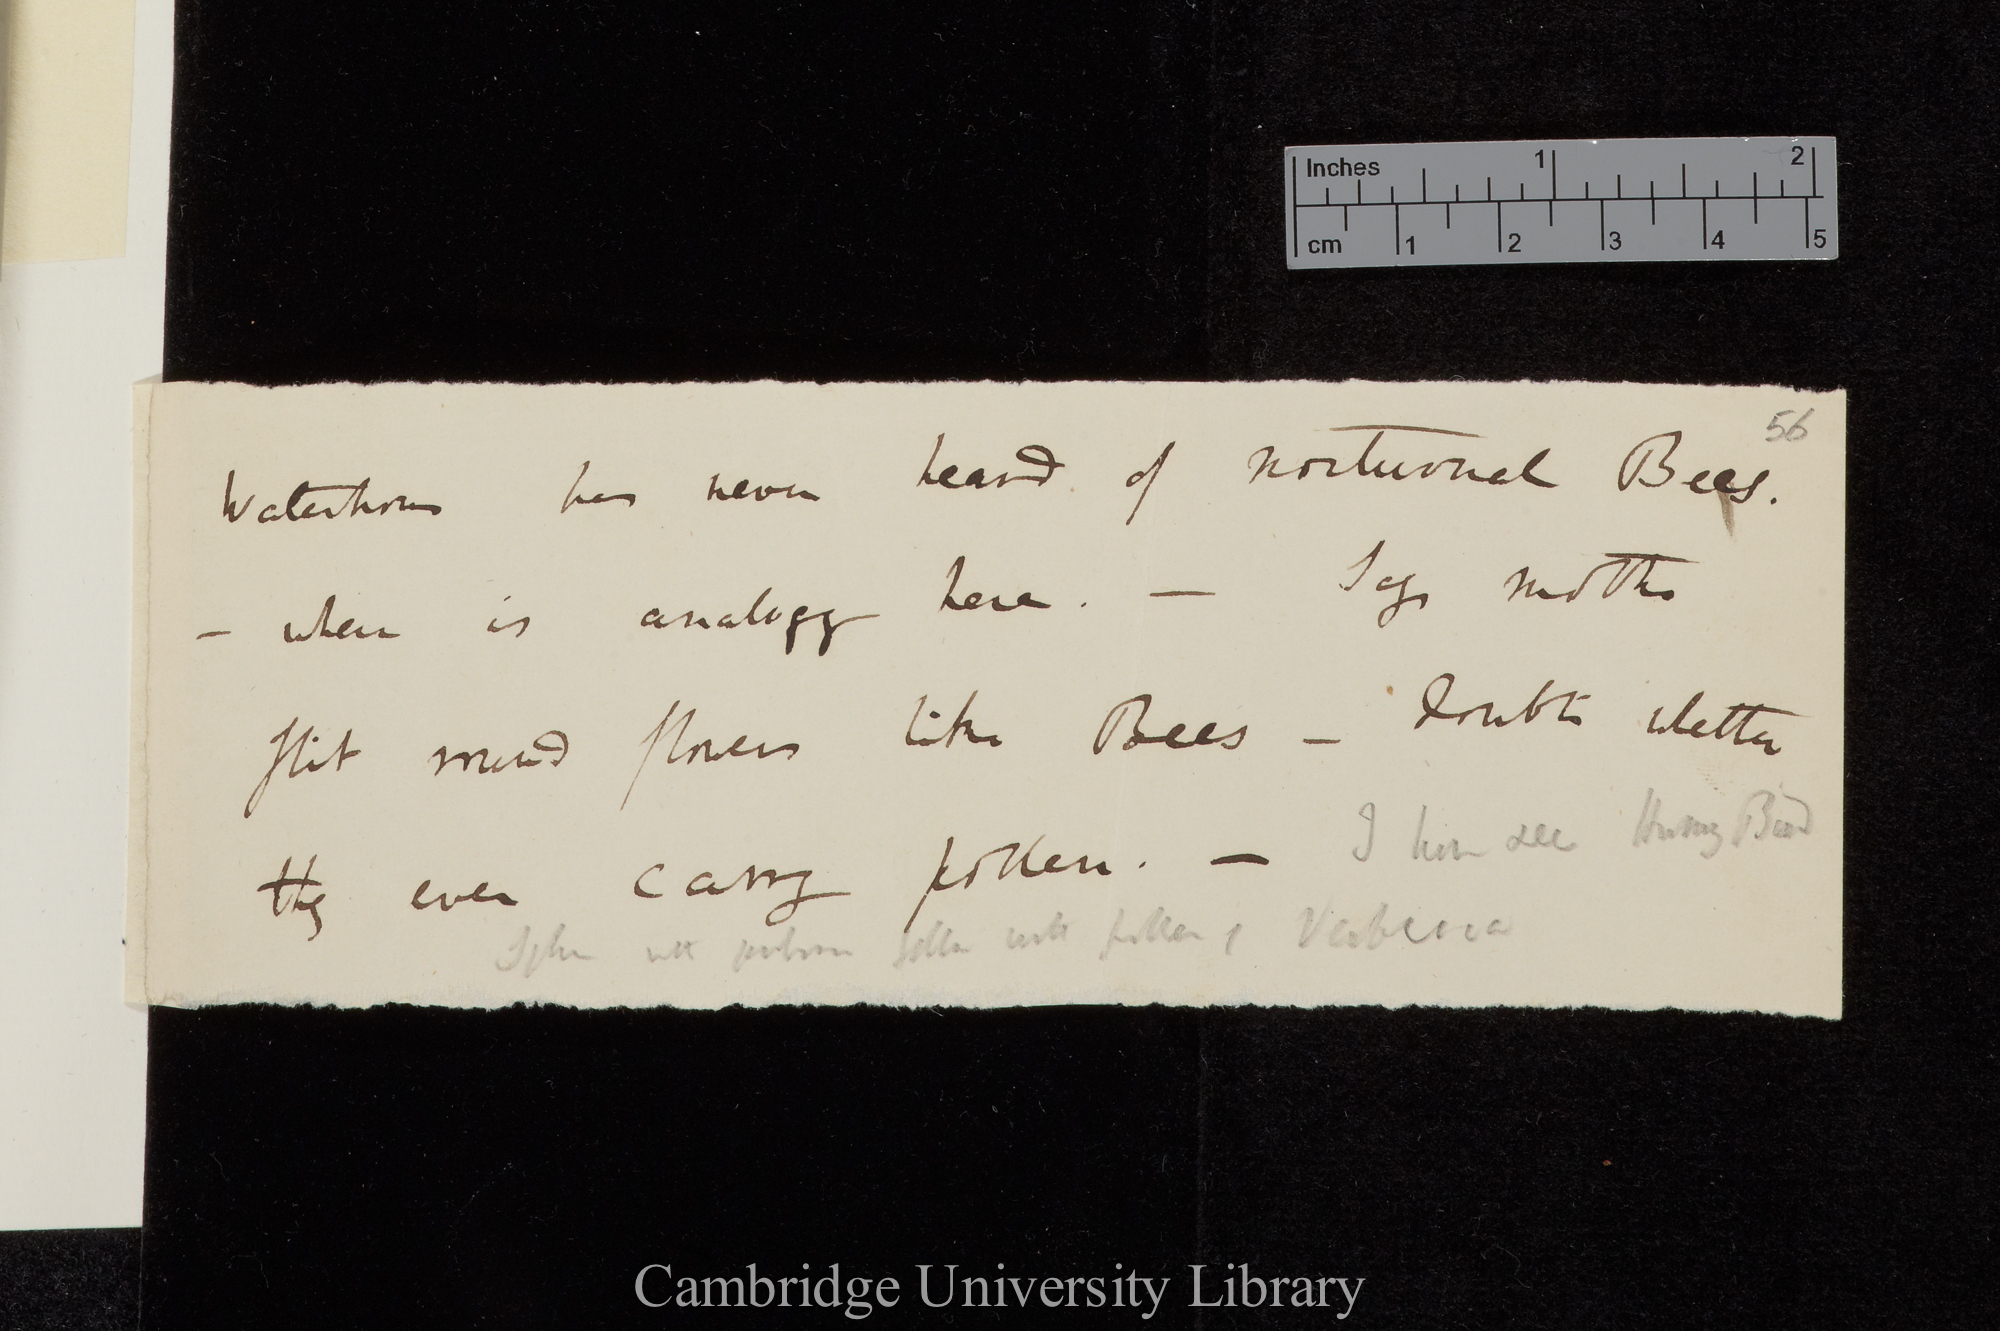 Inches 1 2
cm 1 2 3 4 5
56
Waterhouse has never heard of nocturnal Bees.
— where is analogy here. — Says moths
flit round flowers like Bees — doubts whether
they ever carry pollen. — I have see Humg Bird
Sphinx with proboscis yellow with pollen of Verbena
Cambridge University Library